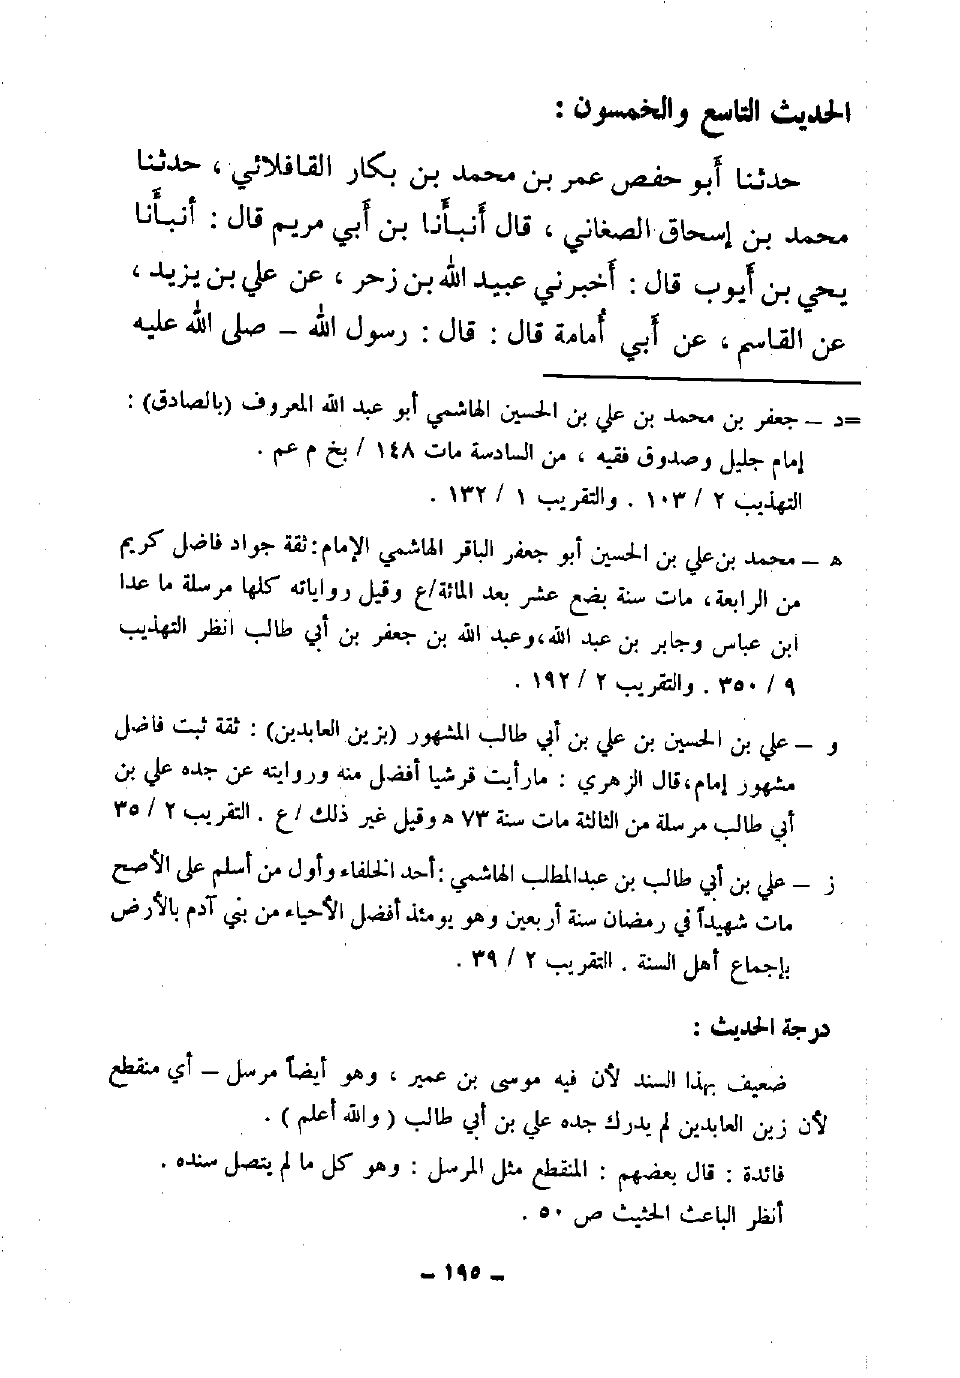 الحديث التاسع والخمسون :
حدثنا أبو حفص عمر بن محمد بن بكار القافلائي ، حدثنا
محمد بن إسحاق الصغاني ، قال أنبأنا بن أبي مريم قال : أنبأنا
يحي بن أيوب قال : أخبرني عبيد الله بن زحر ، عن علي بن يزيد ،
عن القاسم ، عن أبي أُمامة قال : قال : رسول الله – صلى الله عليه
=د – جعفر بن محمد بن علي بن الحسين الهاشمي أبو عبد الله المعروف (بالصادق) :
إمام جليل وصدوق فقيه ، من السادسة مات ١٤٨ / بخ م عم .
التهذيب ٢ / ١٠٣ . والتقريب ١ / ١٣٢ .
ه – محمد بن علي بن الحسين أبو جعفر الباقر الهاشمي الإمام : ثقة جواد فاضل كريم
من الرابعة، مات سنة بضع عشر بعد المائة/ع وقيل رواياته كلها مرسلة ما عدا
ابن عباس وجابر بن عبد الله، وعبد الله بن جعفر بن أبي طالب انظر التهذيب
٩ / ٣٥٠ . والتقريب ٢ / ١٩٢ .
و – علي بن الحسين بن علي بن أبي طالب المشهور (بزين العابدين) : ثقة ثبت فاضل
مشهور إمام، قال الزهري : مارأيت قرشيا أفضل منه وروايته عن جده علي بن
أبي طالب مرسلة من الثالثة مات سنة ٧٣ ه وقيل غير ذلك /ع . التقريب ٢ / ٣٥
ز – علي بن أبي طالب بن عبدالمطلب الهاشمي : أحد الخلفاء وأول من أسلم على الأصح
مات شهيداً في رمضان سنة أربعين وهو يومئذ أفضل الأحياء من بني آدم بالأرض
بإجماع أهل السنة . التقريب ٢ / ٣٩ .
درجة الحديث :
ضعيف بهذا السند لأن فيه موسى بن عمير ، وهو أيضاً مرسل – أي منقطع
لأن زين العابدين لم يدرك جده علي بن أبي طالب ( والله أعلم ) .
فائدة : قال بعضهم : المنقطع مثل المرسل : وهو كل ما لم يتصل سنده .
أنظر الباعث الحثيث ص ٥٠ .
– ١٩٥ –